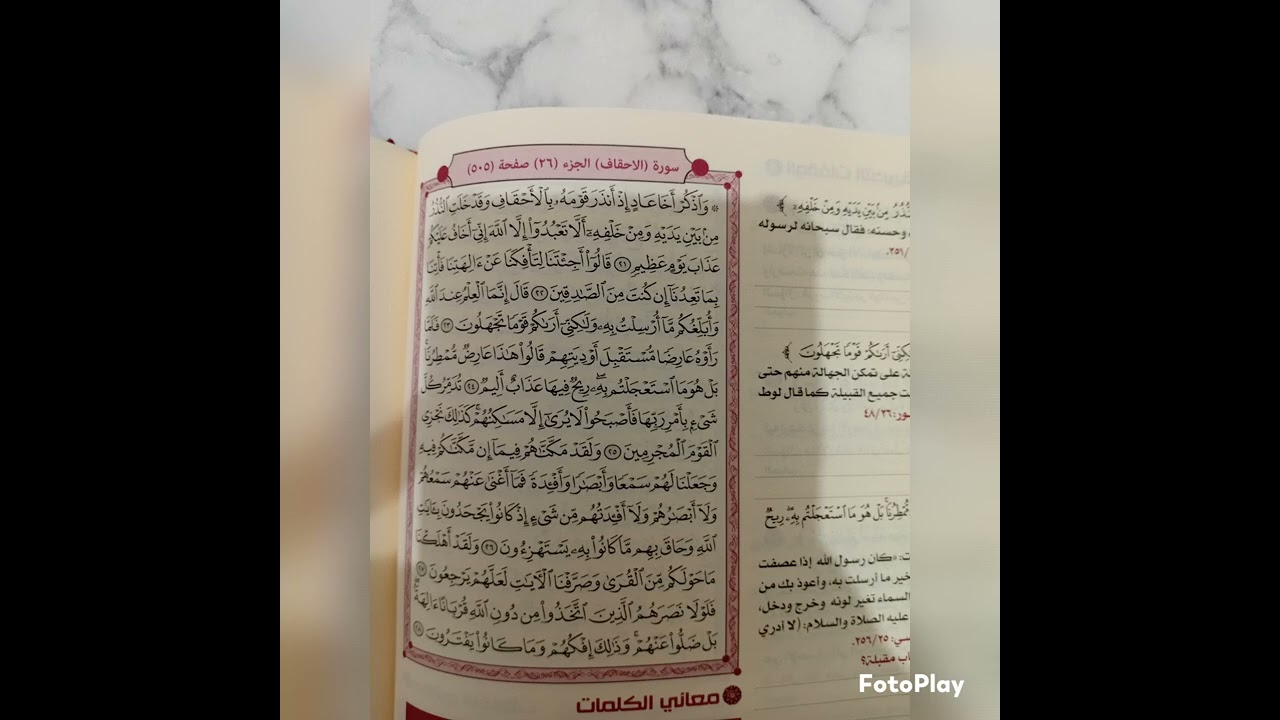 سورة (الاحقاف) الجزء (٢٦) صفحة (٥٠٥)
۞ وَاذْكُرْ أَخَا عَادٍ إِذْ أَنذَرَ قَوْمَهُ بِالْأَحْقَافِ وَقَدْ خَلَتِ النُّذُرُ
مِنْ بَيْنِ يَدَيْهِ وَمِنْ خَلْفِهِ أَلَّا تَعْبُدُوا إِلَّا اللَّهَ إِنِّي أَخَافُ عَلَيْكُمْ
عَذَابَ يَوْمٍ عَظِيمٍ ٢١ قَالُوا أَجِئْتَنَا لِتَأْفِكَنَا عَنْ ءَالِهَتِنَا فَأْتِنَا
بِمَا تَعِدُنَا إِن كُنتَ مِنَ الصَّٰدِقِينَ ٢٢ قَالَ إِنَّمَا الْعِلْمُ عِندَ اللَّهِ
وَأُبَلِّغُكُم مَّا أُرْسِلْتُ بِهِ وَلَٰكِنِّي أَرَىٰكُمْ قَوْمًا تَجْهَلُونَ ٢٣ فَلَمَّا
رَأَوْهُ عَارِضًا مُّسْتَقْبِلَ أَوْدِيَتِهِمْ قَالُوا هَٰذَا عَارِضٌ مُّمْطِرُنَا
بَلْ هُوَ مَا اسْتَعْجَلْتُم بِهِ رِيحٌ فِيهَا عَذَابٌ أَلِيمٌ ٢٤ تُدَمِّرُ كُلَّ
شَيْءٍ بِأَمْرِ رَبِّهَا فَأَصْبَحُوا لَا يُرَىٰ إِلَّا مَسَٰكِنُهُمْ كَذَٰلِكَ نَجْزِي
الْقَوْمَ الْمُجْرِمِينَ ٢٥ وَلَقَدْ مَكَّنَّٰهُمْ فِيمَا إِن مَّكَّنَّٰكُمْ فِيهِ
وَجَعَلْنَا لَهُمْ سَمْعًا وَأَبْصَٰرًا وَأَفْـِٔدَةً فَمَا أَغْنَىٰ عَنْهُمْ سَمْعُهُمْ
وَلَا أَبْصَٰرُهُمْ وَلَا أَفْـِٔدَتُهُم مِّن شَيْءٍ إِذْ كَانُوا يَجْحَدُونَ بِـَٔايَٰتِ
اللَّهِ وَحَاقَ بِهِم مَّا كَانُوا بِهِ يَسْتَهْزِءُونَ ٢٦ وَلَقَدْ أَهْلَكْنَا
مَا حَوْلَكُم مِّنَ الْقُرَىٰ وَصَرَّفْنَا الْآيَٰتِ لَعَلَّهُمْ يَرْجِعُونَ ٢٧
فَلَوْلَا نَصَرَهُمُ الَّذِينَ اتَّخَذُوا مِن دُونِ اللَّهِ قُرْبَانًا ءَالِهَةً
بَلْ ضَلُّوا عَنْهُمْ وَذَٰلِكَ إِفْكُهُمْ وَمَا كَانُوا يَفْتَرُونَ ٢٨
معاني الكلمات
النُّذُرُ مِنْ بَيْنِ يَدَيْهِ وَمِنْ خَلْفِهِ ﴾
وحسنه: فقال سبحانه لرسوله
٢٥٩/
أَرَىٰكُمْ قَوْمًا تَجْهَلُونَ ﴾
على تمكن الجهالة منهم حتى
جميع القبيلة كما قال لوط
٤٨/٢٦
مُّمْطِرُنَا بَلْ هُوَ مَا اسْتَعْجَلْتُم بِهِ رِيحٌ
«كان رسول الله إذا عصفت
خير ما أرسلت به، وأعوذ بك من
السماء تغير لونه وخرج ودخل،
عليه الصلاة والسلام: (لا أدري
٢٥٦/٢٥.
مقبلة؟
FotoPlay